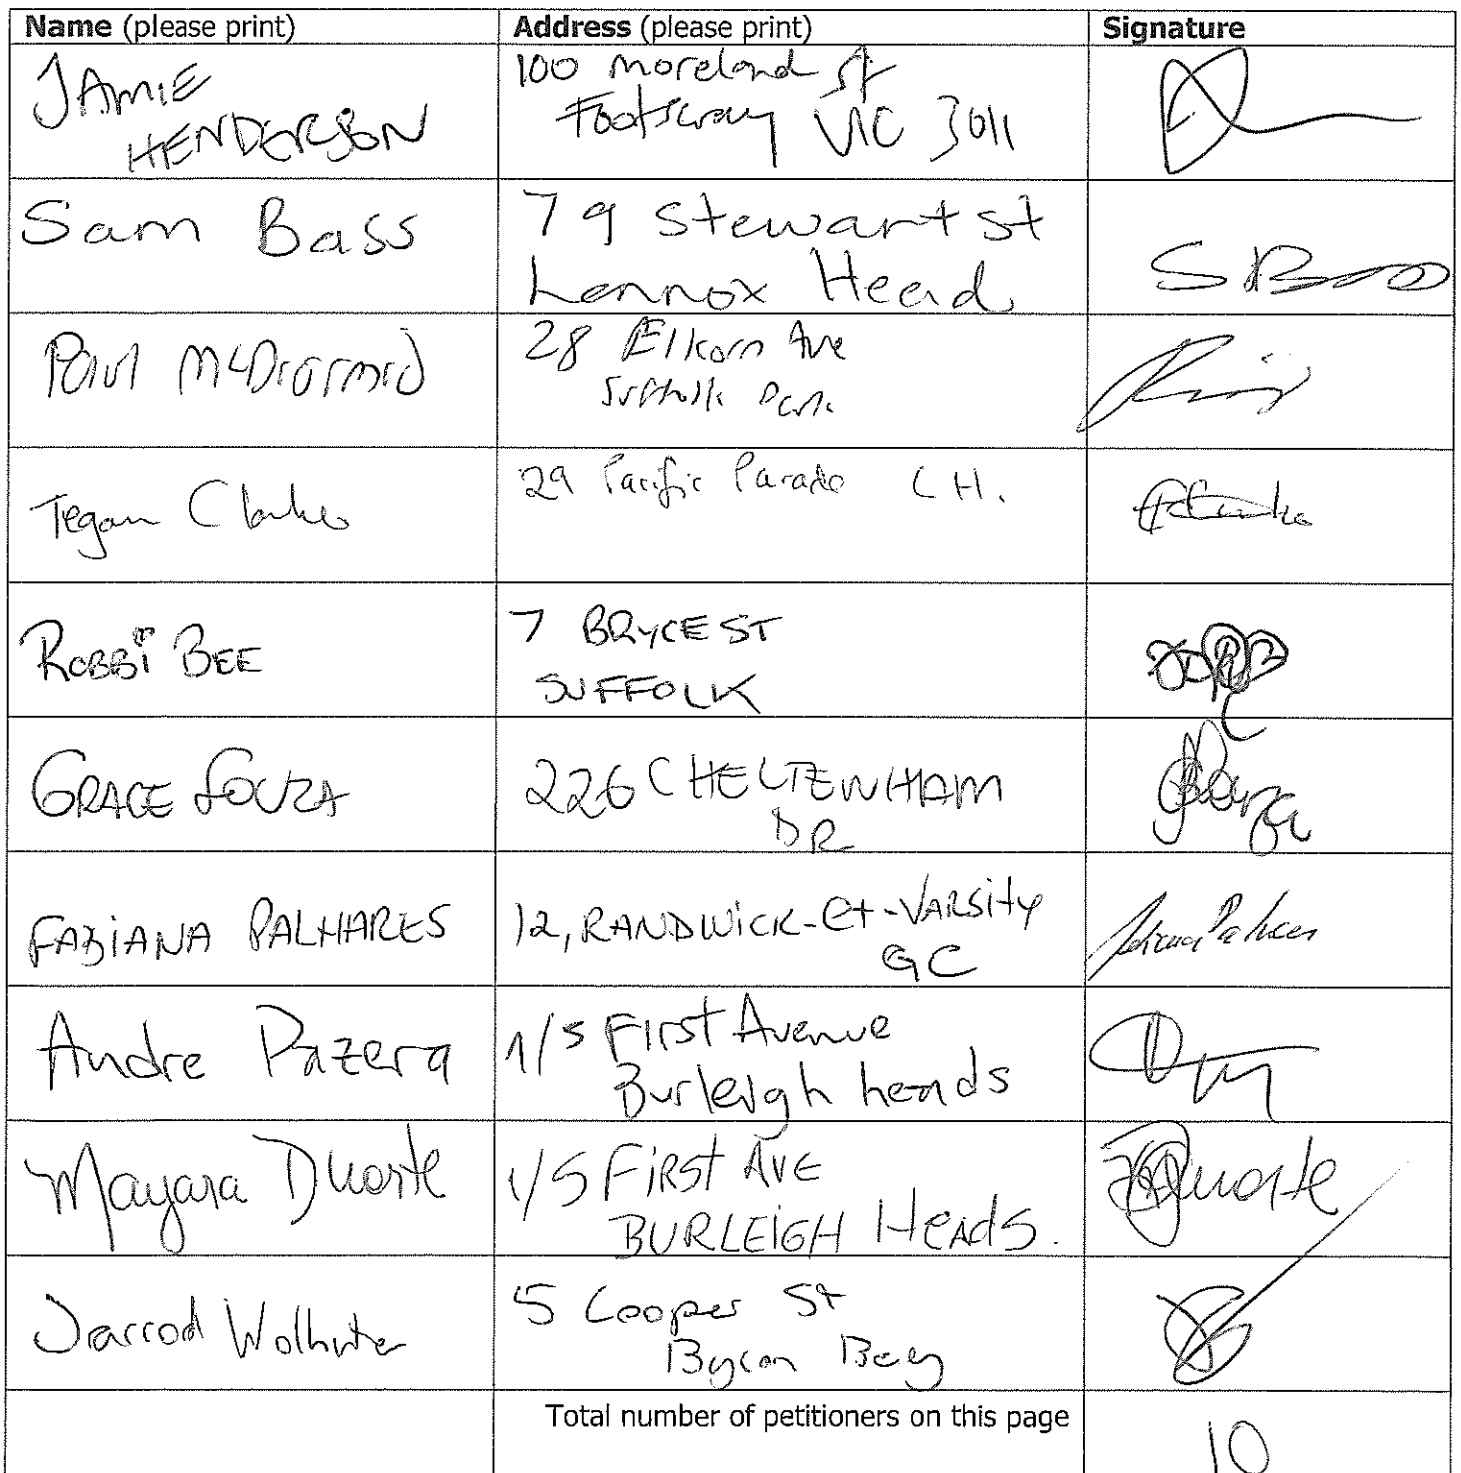 Name (please print) Address (please print) Signature
JAMIE
HENDERSON
100 Moreland St
Footscray VIC 3011
Sam Bass
79 Stewart st
Lennox Head
S Bass
Paul McDiarmid
28 Elkorn Ave
Suffolk Park
Tegan Clarke
29 Pacific Parade LH.
ROBBI BEE
7 BRYCE ST
SUFFOLK
GRACE SOUZA
226 CHELTENHAM
DR
FABIANA PALHARES
12, RANDWICK-Ct-VARSity
GC
Andre Pazera
1/5 First Avenue
Burleigh heads
Mayara Duarte
1/5 FiRST AVE
BURLEiGH HeAdS.
Duarte
Jarrod Wolhuter
5 Cooper St
Byron Bay
Total number of petitioners on this page
10